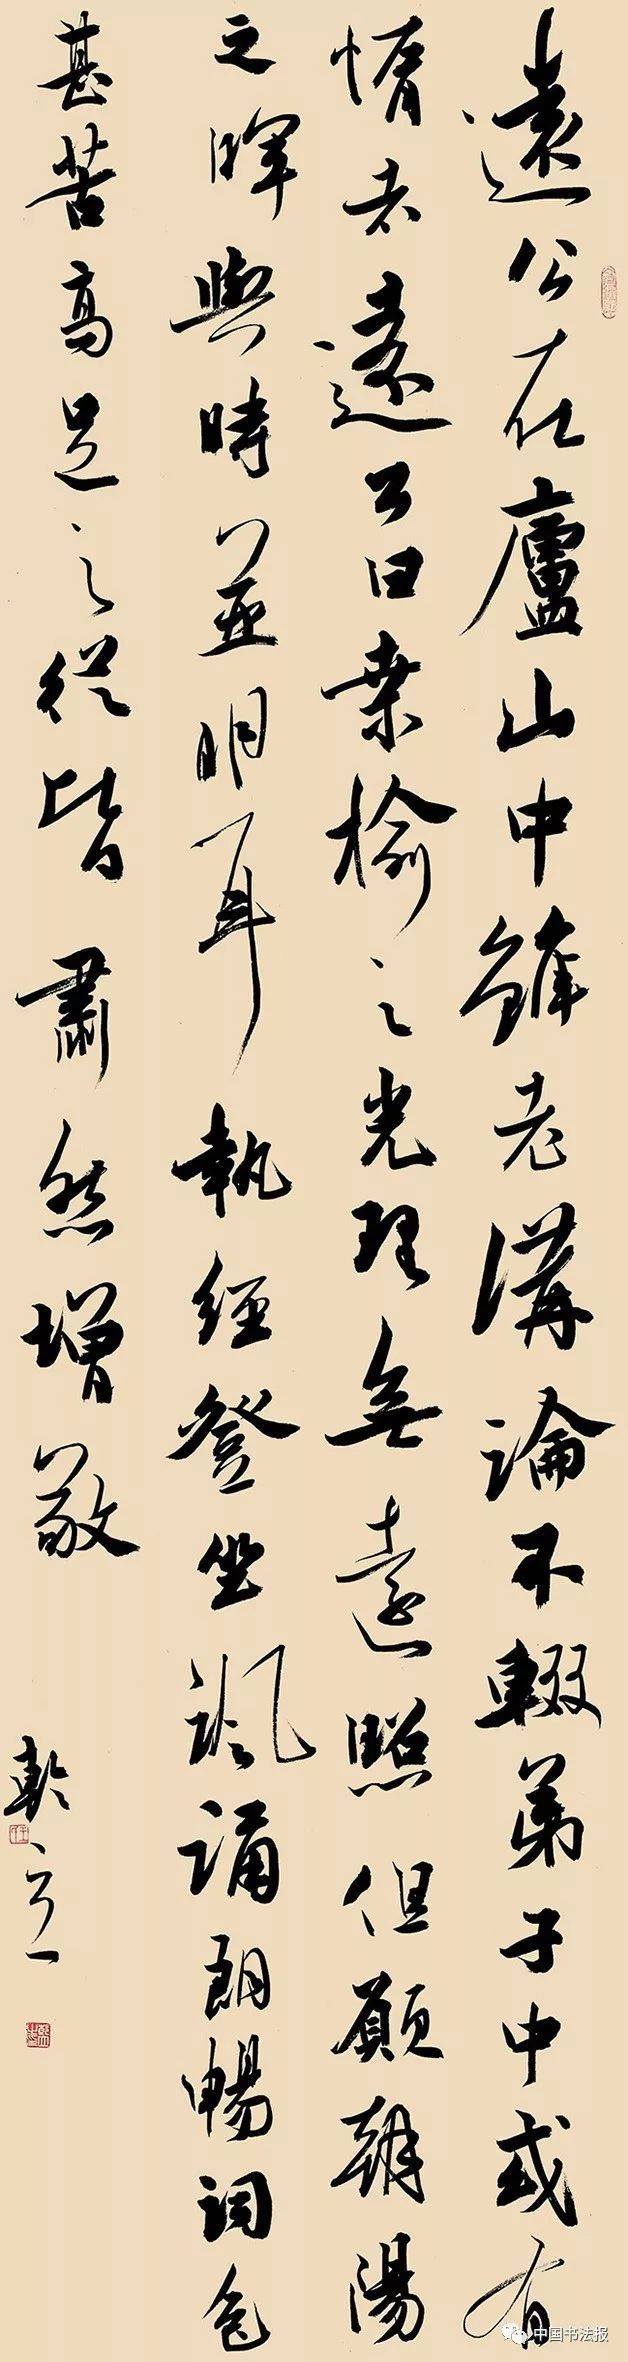 遠公在廬山中雖老講論不輟弟子中或有
惰者遠公曰桑榆之光理無遠照但願朝陽
之暉與時並明耳執經登坐諷誦朗暢詞色
甚苦高足之徒皆肅然增敬
乾立
中国书法报